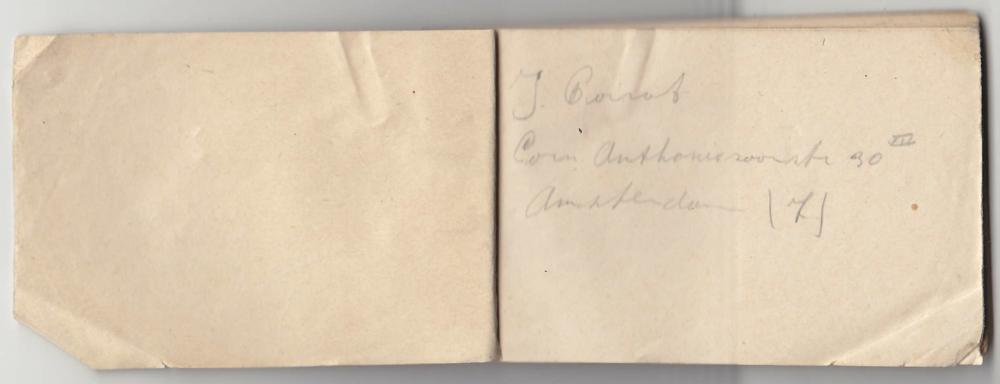 J. Boirot
Corn Anthoniszoonstr 90 III
Amsterdam (Z)